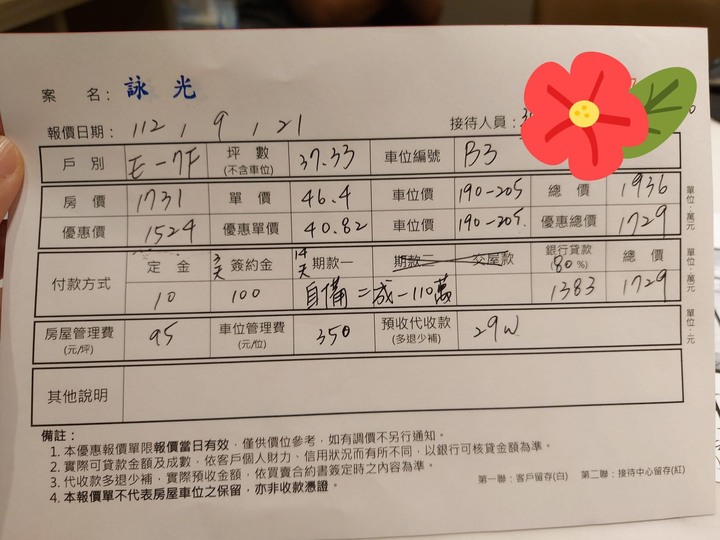 案 名： 詠光
報價日期： 112 / 9 / 21 接待人員：
戶別 E-7F 坪數 (不含車位) 37.33 車位編號 B3
房價 1731 單價 46.4 車位價 190-205 總價 1936 單位：萬元
優惠價 1524 優惠單價 40.82 車位價 190-205. 優惠總價 1729
付款方式 定金 3天 簽約金 14天 期款一 期款二 交屋款 銀行貸款 (80%) 總價 單位：萬元
10 100 自備二成-110萬 1383 1729
房屋管理費 (元/坪) 95 車位管理費 (元/位) 350 預收代收款 (多退少補) 29W 單位：元
其他說明
備註：
1. 本優惠報價單限報價當日有效，僅供價位參考，如有調價不另行通知。
2. 實際可貸款金額及成數，依客戶個人財力、信用狀況而有所不同，以銀行可核貸金額為準。
3. 代收款多退少補，實際預收金額，依買賣合約書簽定時之內容為準。
4. 本報價單不代表房屋車位之保留，亦非收款憑證。
第一聯：客戶留存(白) 第二聯：接待中心留存(紅)